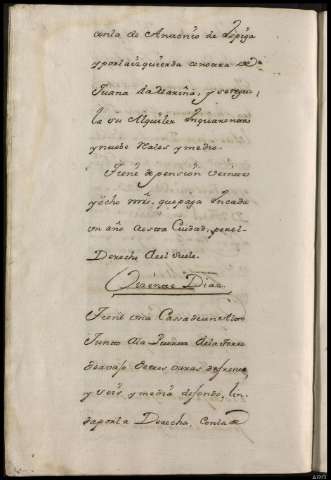 con la de Antonio de Lopiga
y por la izquierda con otra de Dª
Juana la Mariña, y se regu;
la su Alquiler en quarenta
y nuebe Reales y medio.
Tiene de pension veinte
y ocho mrs. que paga en cada
un año a esta Ciudad, por el
Derecho del suelo.
Diaz
Tiene una Casa de un Alto
Junto a la Puerta de la Torre
de abajo de tres varas de frente,
y seis y media de fondo, lin,
da por la Derecha, con la de